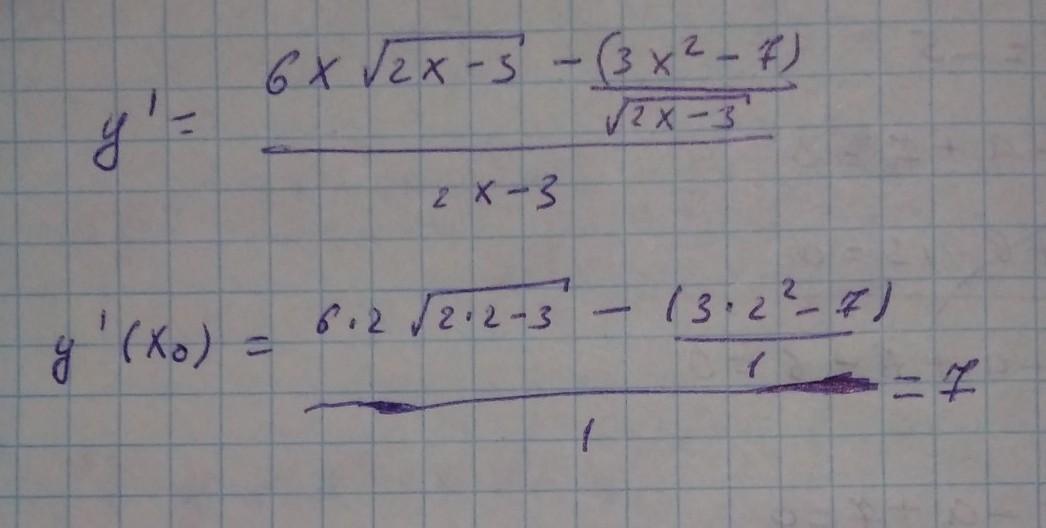 y' = (6x √(2x-3) - (3x² - 7)/√(2x-3)) / (2x-3)
y'(x₀) = (6·2 √(2·2-3) - (3·2² - 7)/1) / 1 = 7